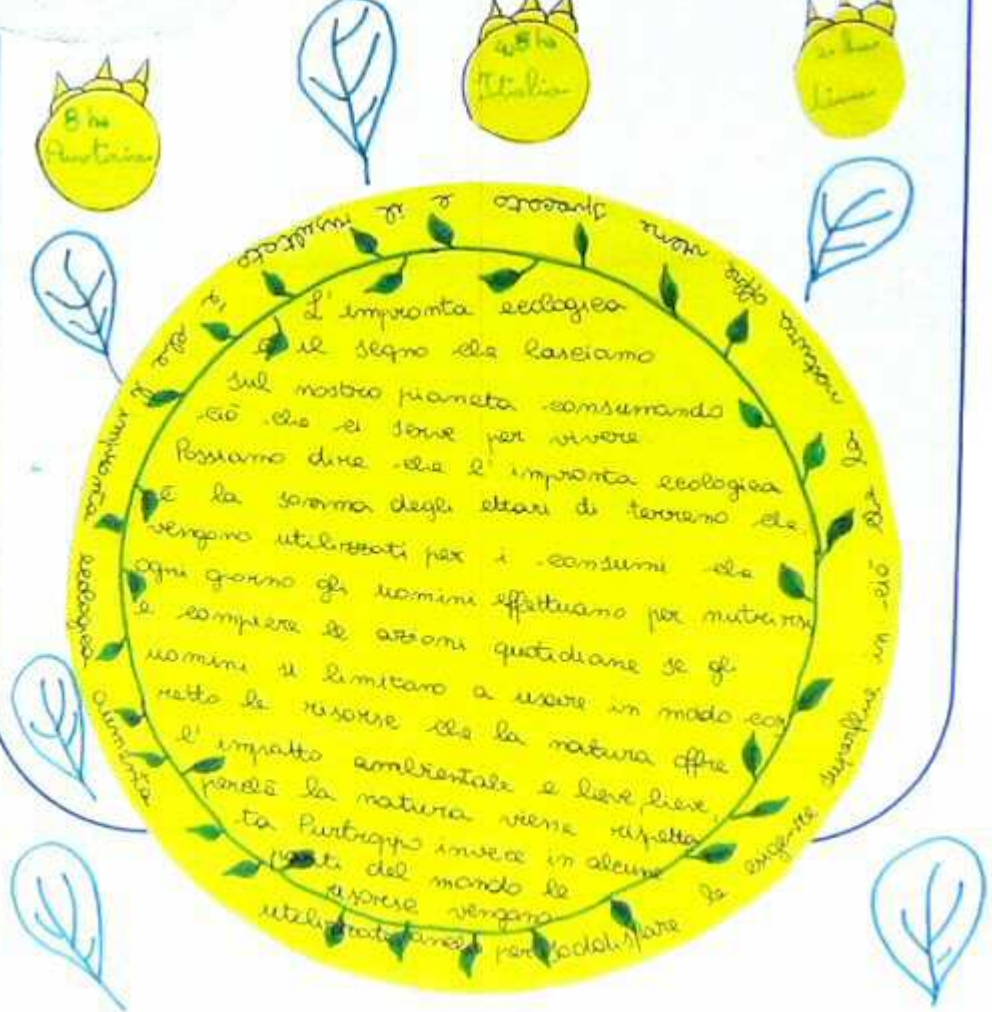 8 ha
Austria
4,5 ha
Italia
L'impronta ecologica
è il segno che lasciamo
sul nostro pianeta consumando
ciò che ci serve per vivere
Possiamo dire che l'impronta ecologica
è la somma degli ettari di terreno che
vengono utilizzati per i consumi che
ogni giorno gli uomini effettuano per nutrirsi
e compiere le azioni quotidiane se gli
uomini si limitano a usare in modo cor
retto le risorse che la natura offre
l'impatto ambientale e lieve, lieve,
perchè la natura viene rispetta
ta Purtroppo invece in alcune
parti del mondo le
risorse vengono
utilizzate anche per soddisfare le esigenze superflue in ciò
che la natura offre viene sprecato e il risultato
è che l'impronta ecologica aumenta